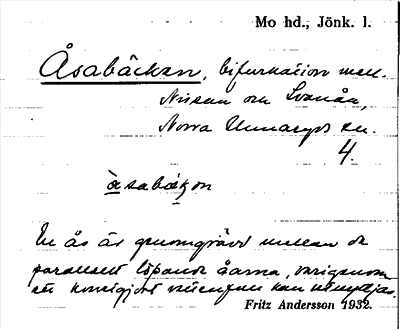 Mo hd., Jönk. l.
Åsabäcken, bifurkation mell.
Nissan och Svanån,
Norra Unnaryds sn.
4.
åsabäkon
En ås är genomgrävd mellan de
parallellt löpande åarna, varigenom
ett konstgjort vattenfall kan utnyttjas.
Fritz Andersson 1932.